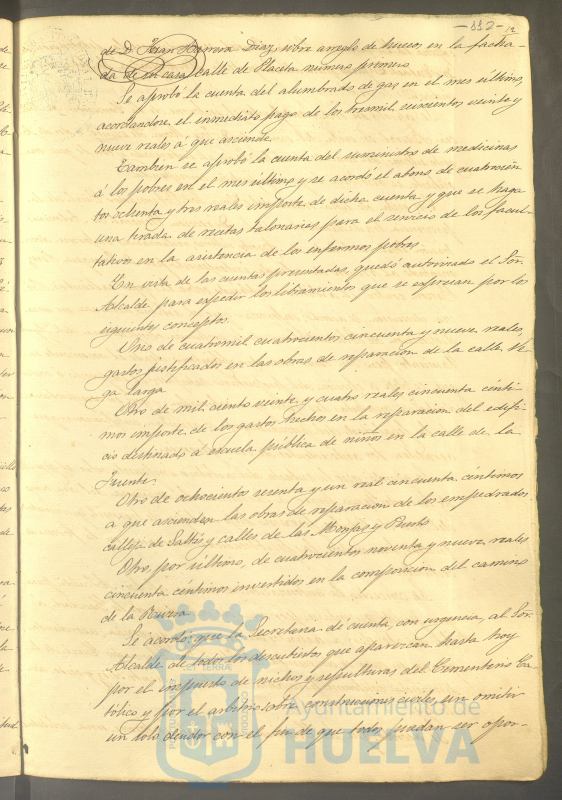 -112- 12
de D. Juan Barrera Diaz, sobre arreglo de huecos en la facha-
da de su casa calle de Placeta número primero.
Se aprobó la cuenta del alumbrado de gas en el mes último,
acordandose el inmediato pago de los tresmil veinte y
nueve reales a que asciende.
Tambien se aprobó la cuenta del suministro de medicinas
á los pobres en el mes último y se acordó el abono de cuatrocien
tos ochenta y tres reales importe de dicha cuenta y que se haga
una tirada de recetas talonarias para el servicio de los facul-
tativos en la asistencia de los enfermos pobres.
En vista de las cuentas presentadas, quedó autorizado el Sor.
Alcalde para expedir los libramientos que se expresan por los
siguientes conceptos.
Uno de cuatromil cuatrocientos cincuenta y nueve reales,
gastos justificados en las obras de reparacion de la calle Ve
ga larga
Otro de mil ciento veinte y cuatro reales cincuenta cénti-
mos importe de los gastos hechos en la reparacion del edifi-
cio destinado á escuela pública de niños en la calle de la
Fuente.
Otro de ochocientos y un real cincuenta céntimos
a que ascienden las obras de reparacion de los empedrados
calleja de Saltés y calles de las Monjas y Puerto
Otro, por último, de cuatrocientos noventa y nueve reales
cincuenta céntimos invertidos en la composicion del camino
de la
Se acordó que la Secretaria dé cuenta, con urgencia, al Sor.
Alcalde de todos los descubiertos que aparezcan hasta hoy
por el impuesto de nichos y sepulturas del Cementerio Ca-
tólico y por el arbitrio sobre construcciones civiles sin omitir
un solo deudor con el fin de que todos puedan ser opor-
Ayuntamiento de
HUELVA